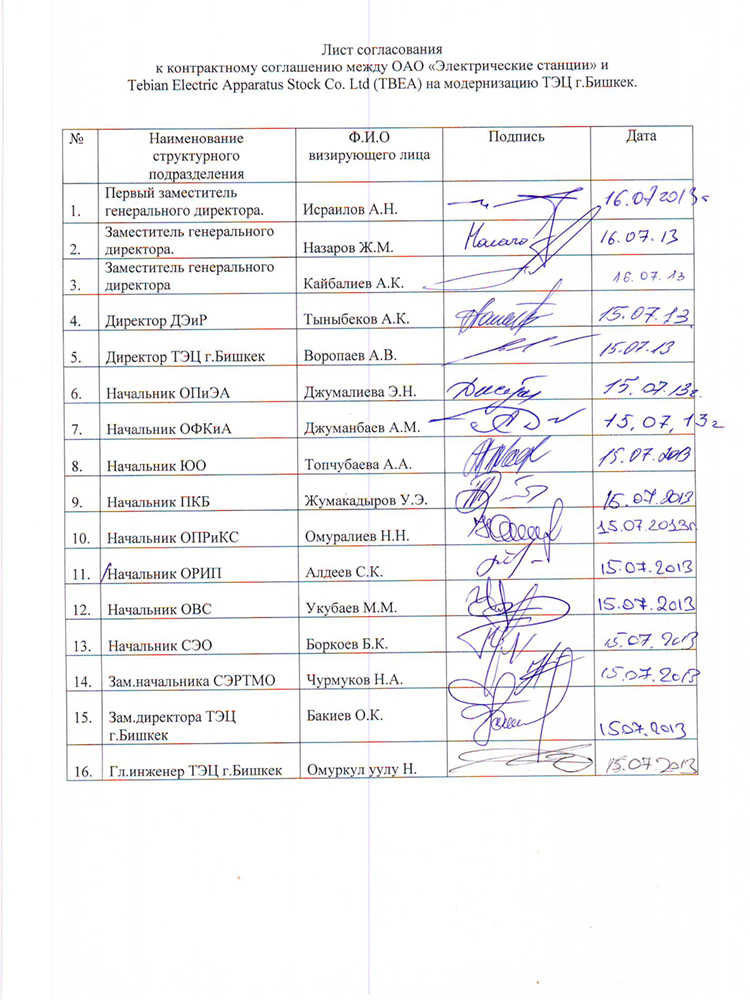 Лист согласования
к контрактному соглашению между ОАО «Электрические станции» и
Tebian Electric Apparatus Stock Co. Ltd (TBEA) на модернизацию ТЭЦ г.Бишкек.
№ Наименование структурного подразделения Ф.И.О визирующего лица Подпись Дата
1. Первый заместитель генерального директора. Исраилов А.Н. 16.07 2013 г
2. Заместитель генерального директора. Назаров Ж.М. 16.07.13
3. Заместитель генерального директора Кайбалиев А.К. 16.07.13
4. Директор ДЭиР Тыныбеков А.К. 15.07.13
5. Директор ТЭЦ г.Бишкек Воропаев А.В. 15.07.13
6. Начальник ОПиЭА Джумалиева Э.Н. 15.07.13г.
7. Начальник ОФКиА Джуманбаев А.М. 15,07,13 г
8. Начальник ЮО Топчубаева А.А. 15.07.2013
9. Начальник ПКБ Жумакадыров У.Э. 15.07.2013
10. Начальник ОПРиКС Омуралиев Н.Н. 15.07.2013г
11. Начальник ОРИП Алдеев С.К. 15.07.2013
12. Начальник ОВС Укубаев М.М. 15.07.2013
13. Начальник СЭО Боркоев Б.К. 15.07.2013
14. Зам.начальника СЭРТМО Чурмуков Н.А. 15.07.2013
15. Зам.директора ТЭЦ г.Бишкек Бакиев О.К. 15.07.2013
16. Гл.инженер ТЭЦ г.Бишкек Омуркул уулу Н. 15.07.2013